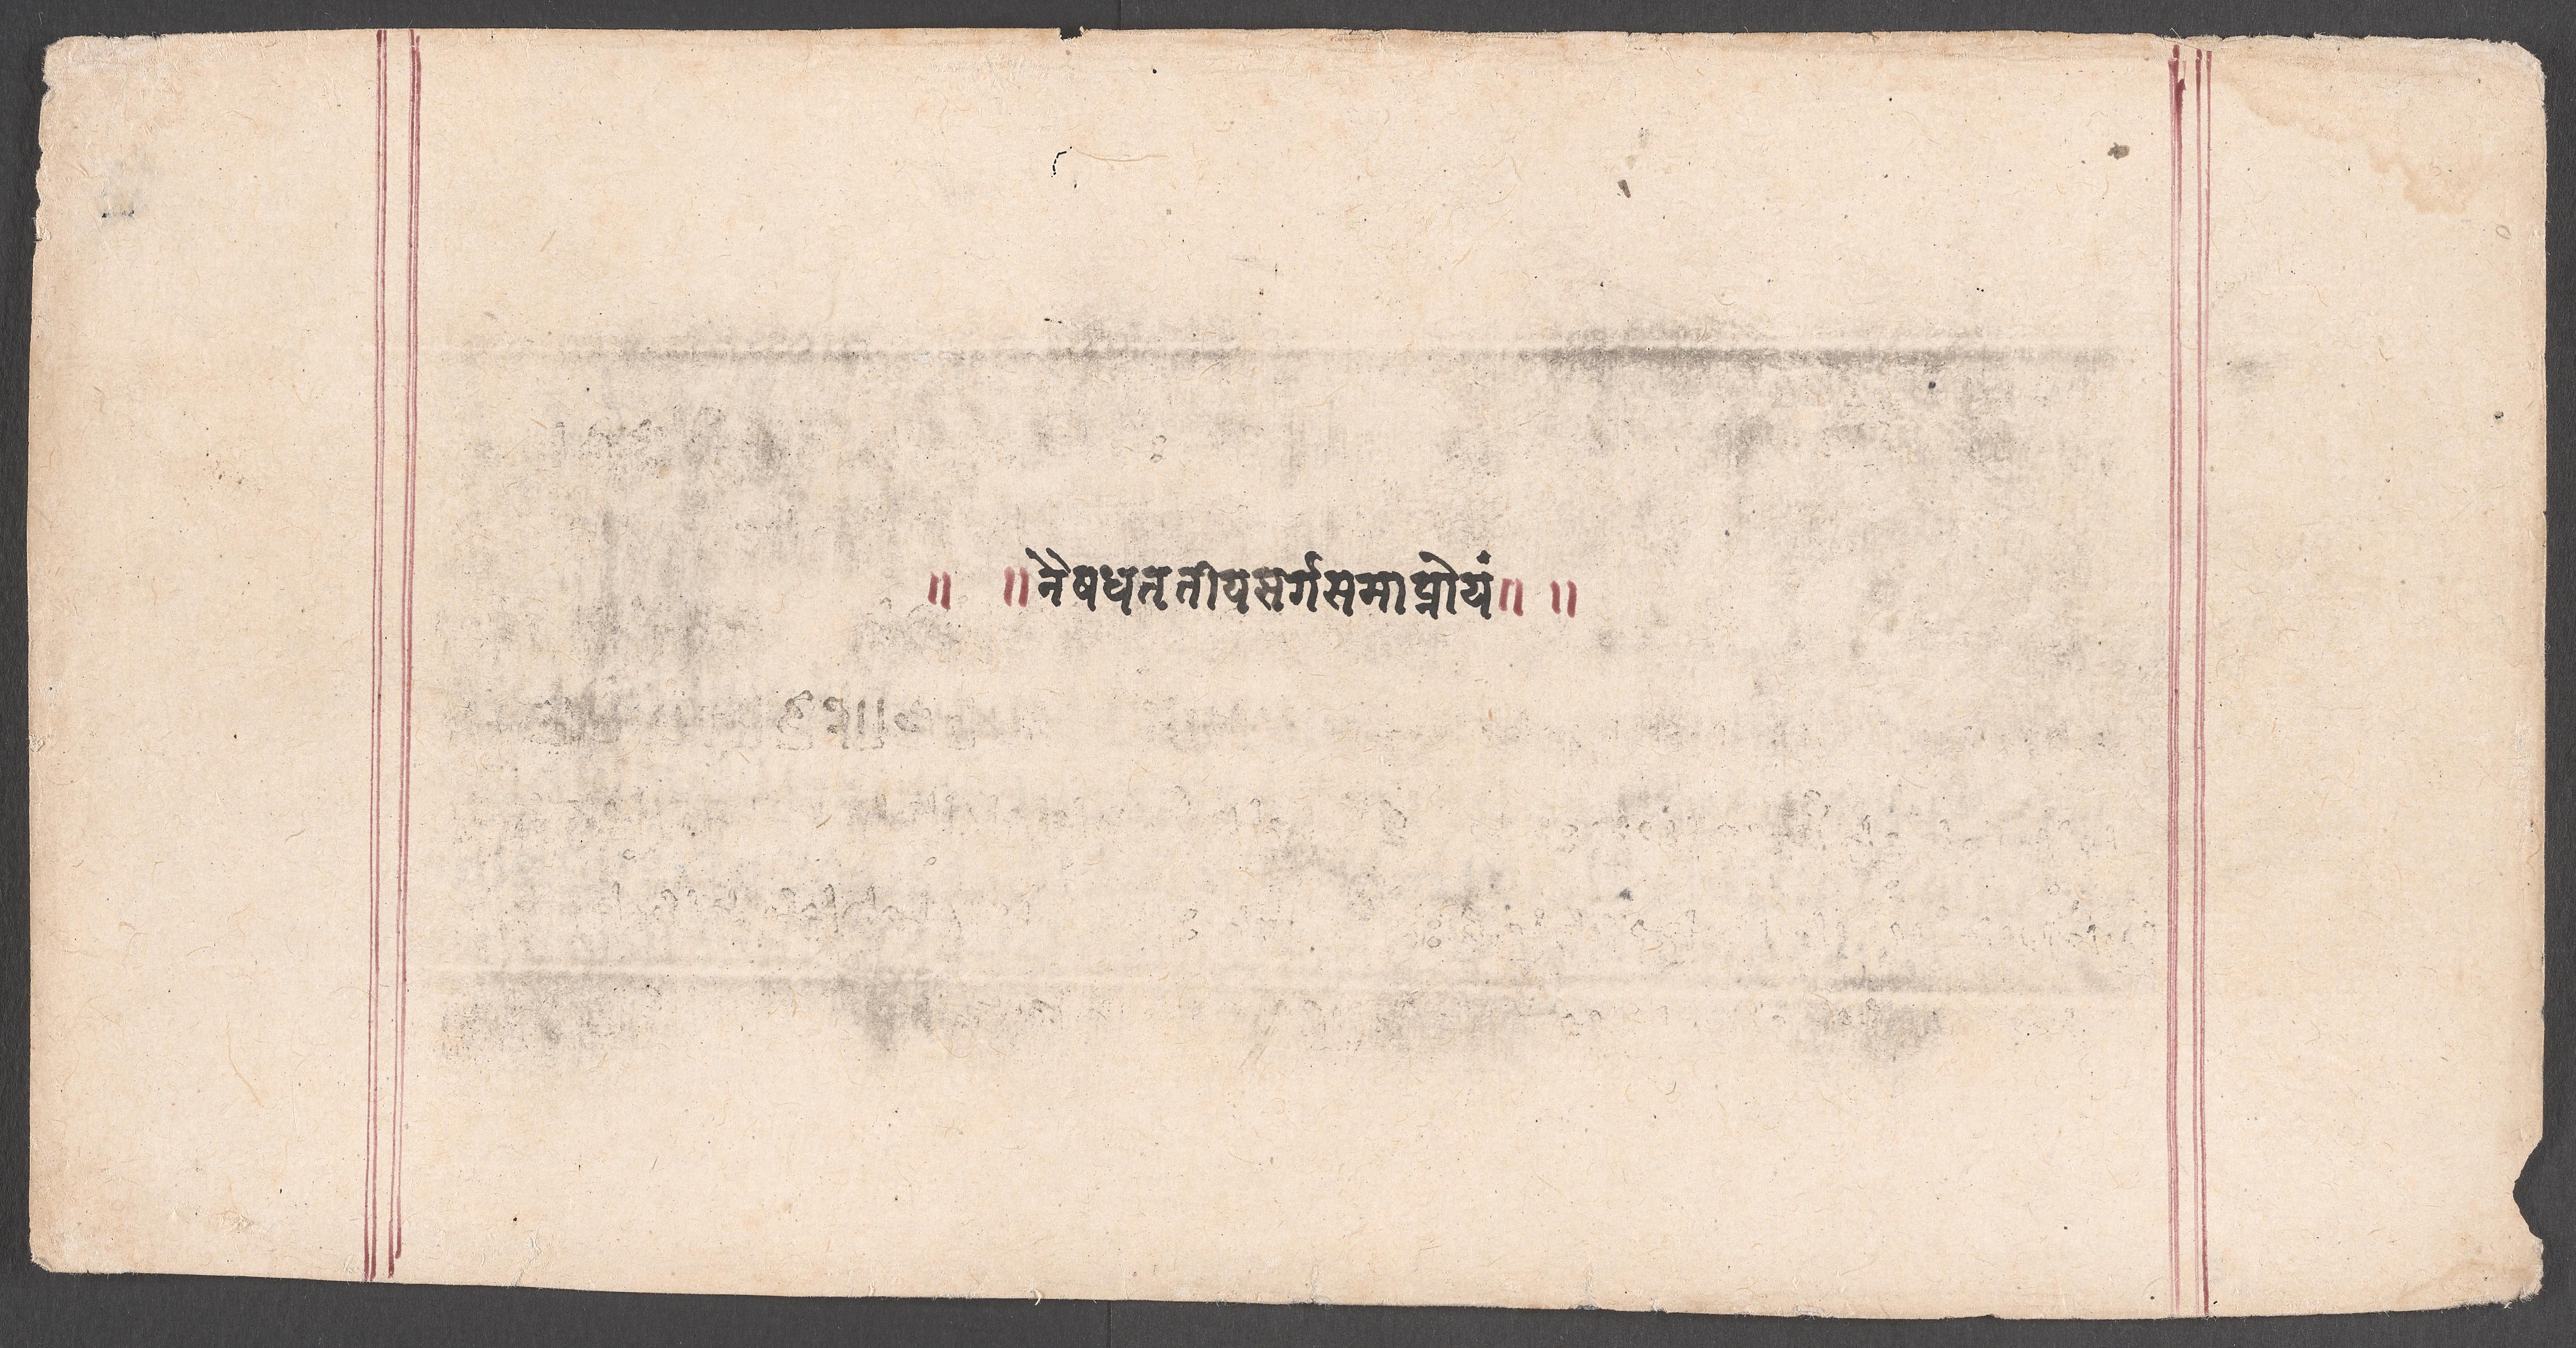 ॥ ॥नैषधतृतीयसर्गसमाप्तोयं॥ ॥